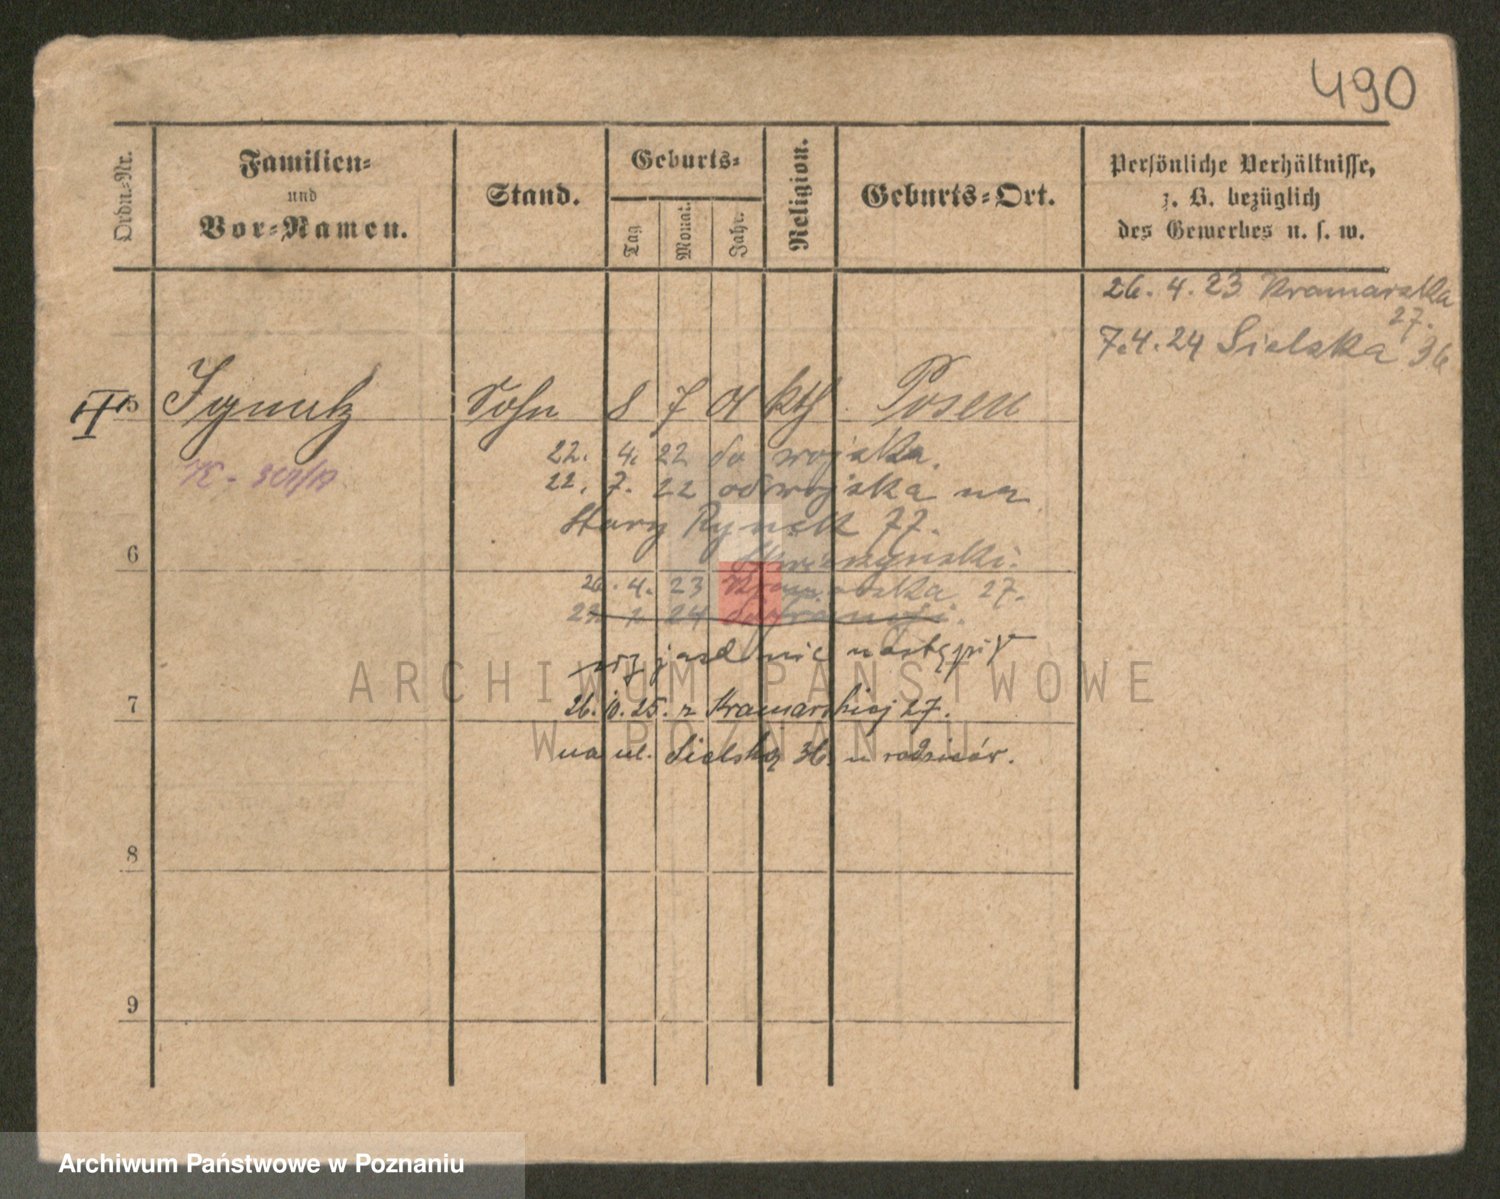 490
Ordn=Nr.
Familien=
und
Vor=Namen.
Stand.
Geburts=
Tag
Monat.
Jahr.
Religion.
Geburts=Ort.
Persönliche Verhältnisse,
z. B. bezüglich
des Gewerbes u. s. w.
26. 4. 23 Kramarska
27.
7.4.24 Sielska 36
5 Ignatz Sohn 8 7 01 kth Posen
22. 4. 22 do wojska.
22. 7. 22 od wojska na
Stary Rynek 77.
6
26. 4. 23 Kramarska 27.
24
wyjazd nie nastąpił
7
26. 10. 25. z Kramarskiej 27.
na ul. Sielską 36. u rodziców.
8
9
ARCHIWUM PAŃSTWOWE
W POZNANIU
Archiwum Państwowe w Poznaniu